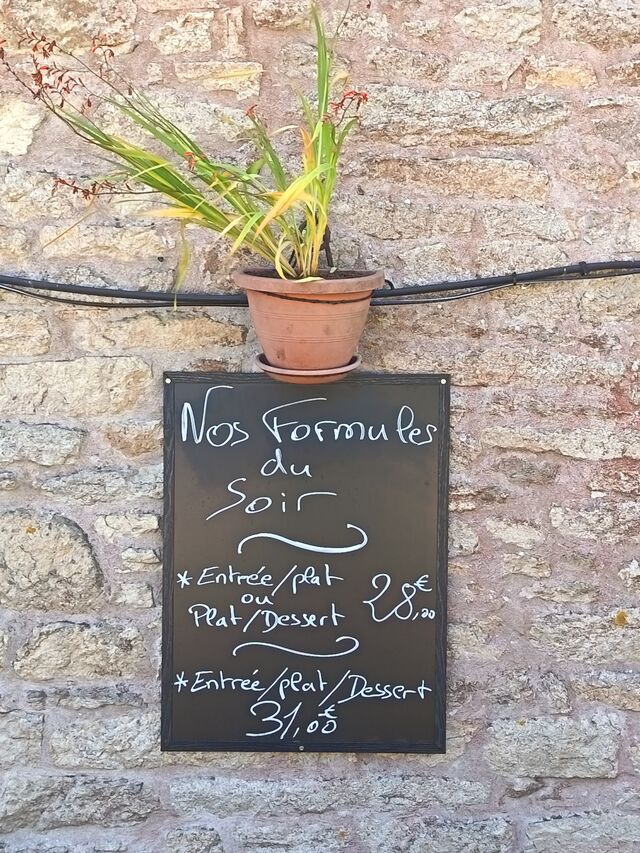 Nos Formules
du
Soir
* Entrée/plat
ou
Plat/Dessert
28,20€
* Entrée/plat/Dessert
31,00€